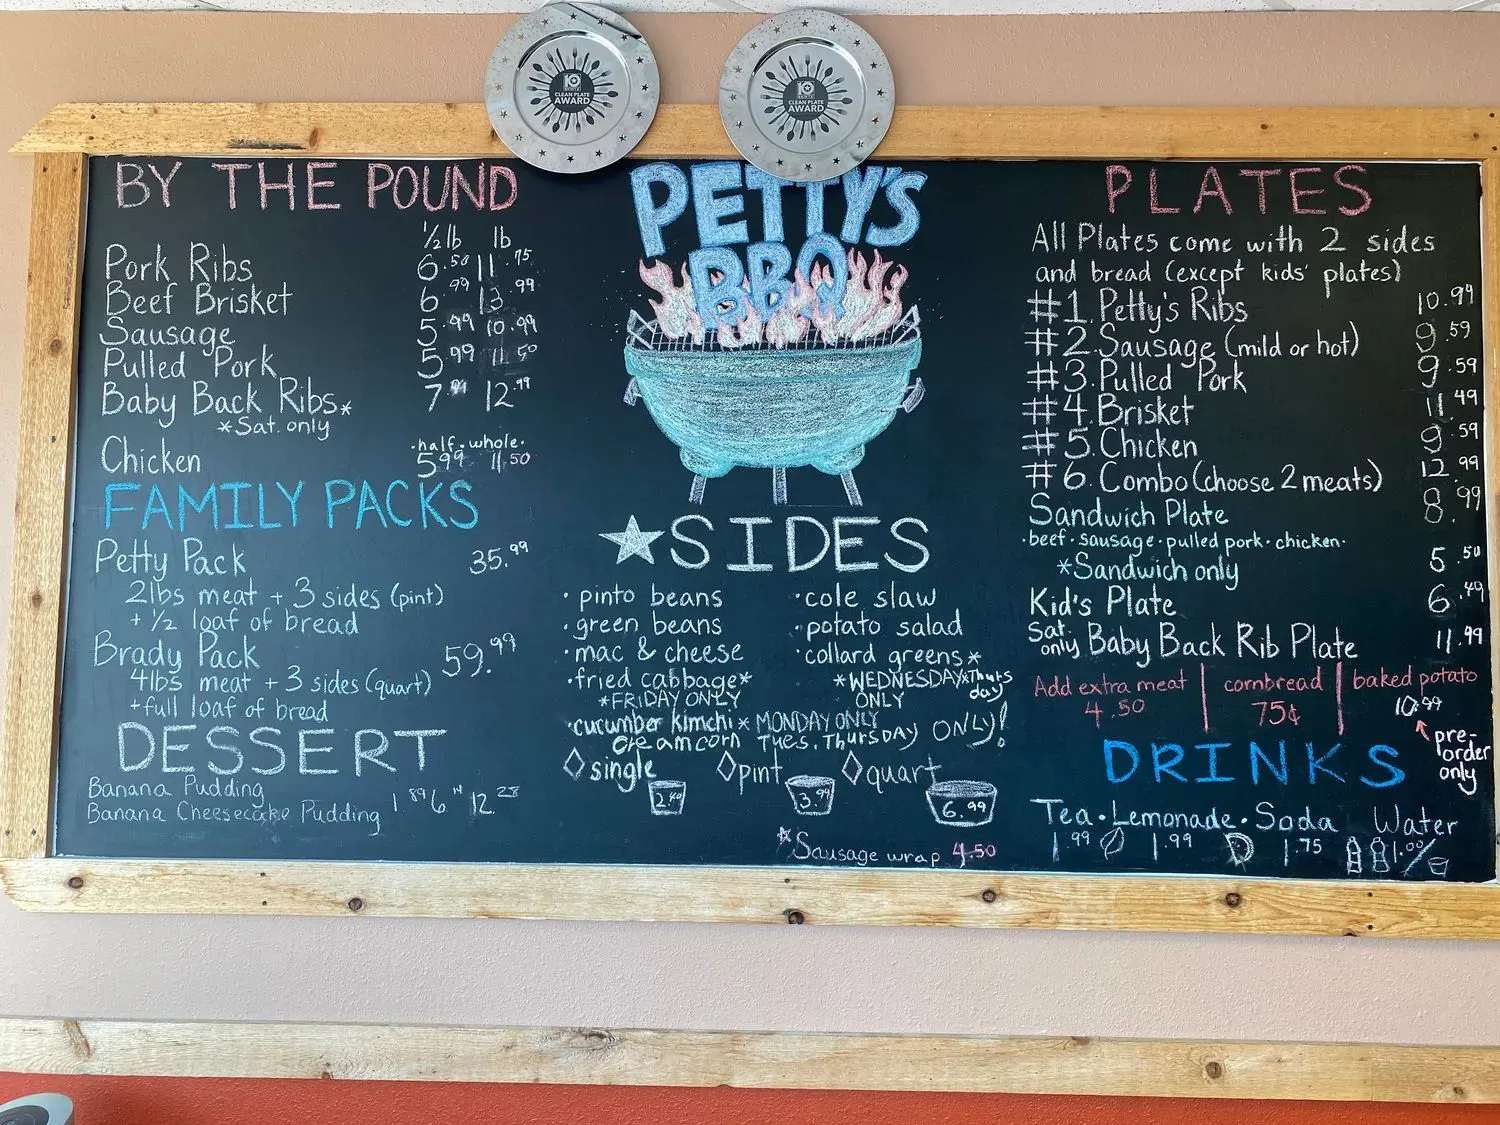 CLEAN PLATE
AWARD
CLEAN PLATE
AWARD
BY THE POUND
1/2 lb lb
Pork Ribs 6.50 11.75
Beef Brisket 6.99 13.99
Sausage 5.99 10.99
Pulled Pork 5.99 11.50
Baby Back Ribs* 7.99 12.99
*Sat. only
·half· whole·
Chicken 5.99 11.50
FAMILY PACKS
Petty Pack 35.99
2lbs meat + 3 sides (pint)
+ 1/2 loaf of bread
Brady Pack 59.99
4lbs meat + 3 sides (quart)
+full loaf of bread
DESSERT
Banana Pudding
Banana Cheesecake Pudding 1.89 6. 12.
PETTY'S
BBQ
★SIDES
· pinto beans
· green beans
· mac & cheese
· fried cabbage*
*FRIDAY ONLY
· cole slaw
· potato salad
· collard greens*
*WEDNESDAY & Thursday
ONLY
· cucumber kimchi * MONDAY ONLY
cream corn Tues. Thursday ONLY!
◇ single ◇ pint ◇ quart
2.40 3.99 6.99
*Sausage wrap 4.50
PLATES
All Plates come with 2 sides
and bread (except kids' plates)
#1. Petty's Ribs 10.99
#2. Sausage (mild or hot) 9.59
#3. Pulled Pork 9.59
#4. Brisket 11.49
#5. Chicken 9.59
#6. Combo (choose 2 meats) 12.99
Sandwich Plate 8.99
·beef·sausage·pulled pork·chicken·
*Sandwich only 5.50
Kid's Plate 6.49
Sat. only Baby Back Rib Plate 11.99
Add extra meat | cornbread | baked potato
4.50 75¢ 10.99
pre-
order
only
DRINKS
Tea · Lemonade · Soda Water
1.99 1.99 1.75 1.00/